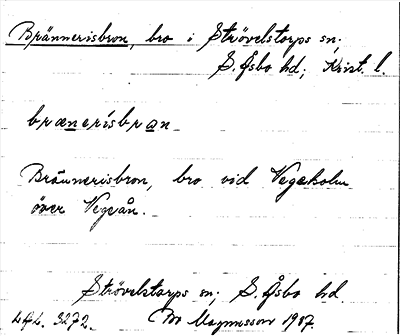 Brännerisbron, bro i Strövelstorps sn;
S. Åsbo hd; Krist. l.
brænerisbron
Brännerisbron, bro vid Vegeholm
över Vegeån.
Strövelstorps sn; S. Åsbo hd
3272. Magnusson 1907.